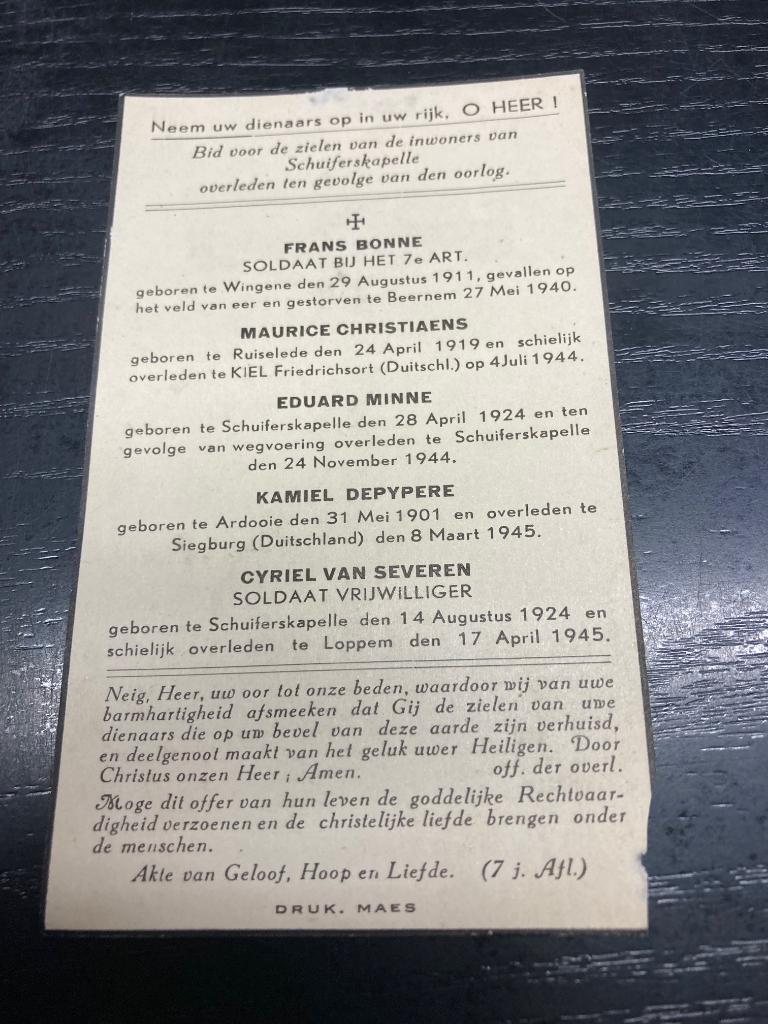 Neem uw dienaars op in uw rijk, O HEER !
Bid voor de zielen van de inwoners van
Schuiferskapelle
overleden ten gevolge van den oorlog.
FRANS BONNE
SOLDAAT BIJ HET 7e ART.
geboren te Wingene den 29 Augustus 1911, gevallen op
het veld van eer en gestorven te Beernem 27 Mei 1940.
MAURICE CHRISTIAENS
geboren te Ruiselede den 24 April 1919 en schielijk
overleden te KIEL Friedrichsort (Duitschl.) op 4 Juli 1944.
EDUARD MINNE
geboren te Schuiferskapelle den 28 April 1924 en ten
gevolge van wegvoering overleden te Schuiferskapelle
den 24 November 1944.
KAMIEL DEPYPERE
geboren te Ardooie den 31 Mei 1901 en overleden te
Siegburg (Duitschland) den 8 Maart 1945.
CYRIEL VAN SEVEREN
SOLDAAT VRIJWILLIGER
geboren te Schuiferskapelle den 14 Augustus 1924 en
schielijk overleden te Loppem den 17 April 1945.
Neig, Heer, uw oor tot onze beden, waardoor wij van uwe
barmhartigheid afsmeeken dat Gij de zielen van uwe
dienaars die op uw bevel van deze aarde zijn verhuisd,
en deelgenoot maakt van het geluk uwer Heiligen. Door
Christus onzen Heer ; Amen. off. der overl.
Moge dit offer van hun leven de goddelijke Rechtvaar-
digheid verzoenen en de christelijke liefde brengen onder
de menschen.
Akte van Geloof, Hoop en Liefde. (7 j. Afl.)
DRUK. MAES